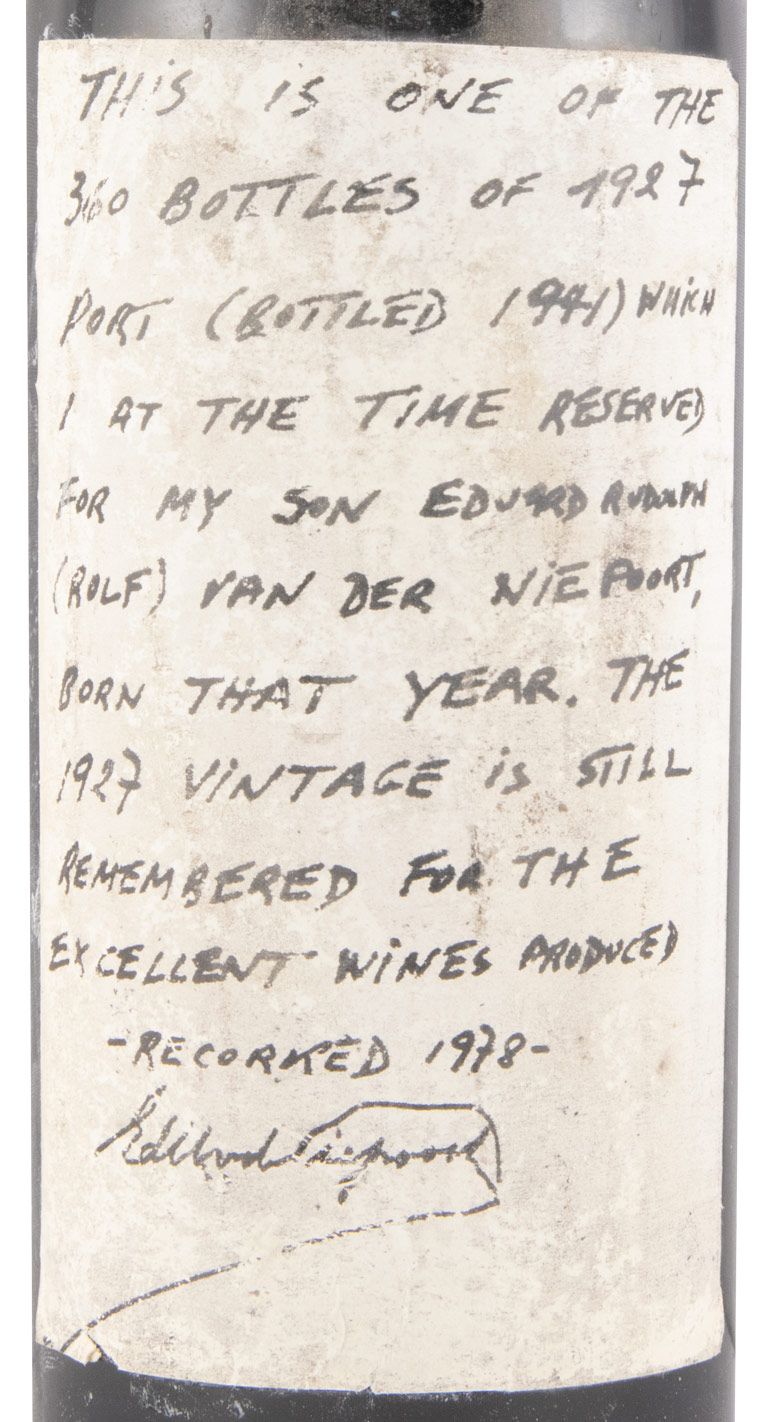 THIS IS ONE OF THE
360 BOTTLES OF 1927
PORT (BOTTLED 1941) WHICH
I AT THE TIME RESERVED
FOR MY SON EDUARD RUDOLPH
(ROLF) VAN DER NIEPOORT,
BORN THAT YEAR. THE
1927 VINTAGE is STILL
REMEMBERED FOR THE
EXCELLENT WINES PRODUCED
-RECORKED 1978-